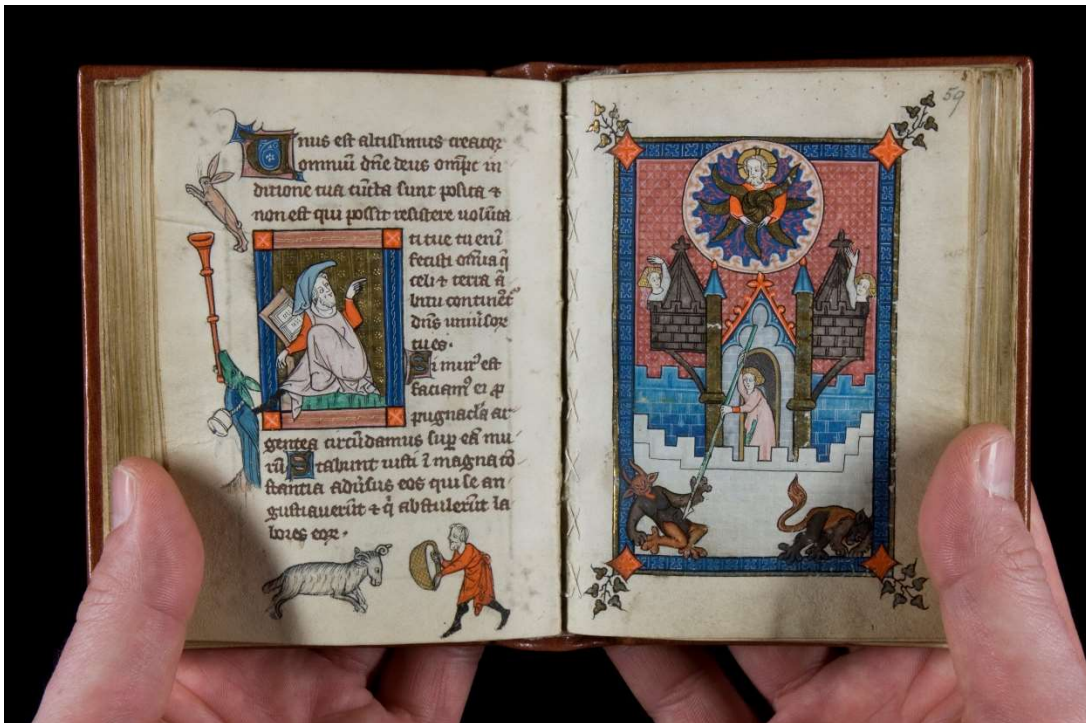 Unus est altissimus creator
omniū dn̄e deus omp̄c in
ditione tua cūcta sunt posita ⁊
non est qui possit resistere uolūta
ti tue tu enī
fecisti om̄ia q̄
celi ⁊ terra ā
bitu continet᷑
dn̄s uniu᷑soꝝ
tu es.
Si mur᷒ est
faciam᷒ ei ꝓ
pugnacl̄a ar
gentea circūdamus suꝑ eā mu
rū Stabunt iusti ī magna cō
stantia adu᷑sus eos qui se an
gustiauerūt ⁊ q̄ abstulerūt la
bores eoꝝ.
59